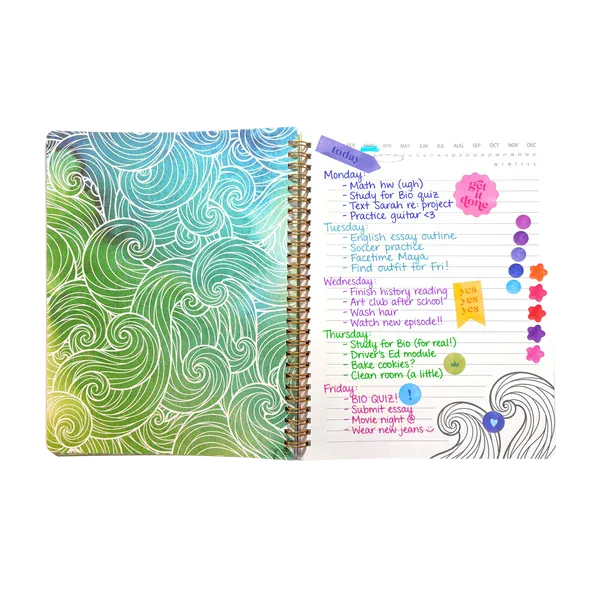 MAR APR MAY JUN JUL AUG SEP OCT NOV DEC
today
M T W T F S S
Monday:
- Math hw (ugh)
- Study for Bio quiz
- Text Sarah re: project
- Practice guitar <3
get it done
Tuesday:
- English essay outline
- Soccer practice
- Facetime Maya
- Find outfit for Fri!
Wednesday:
- Finish history reading
- Art club after school
- Wash hair
- Watch new episode!!
yes
yes
yes
Thursday:
- Study for Bio (for real!)
- Driver's Ed module
- Bake cookies?
- Clean room (a little)
Friday:
- BIO QUIZ!
!
- Submit essay
- Movie night @
- Wear new jeans